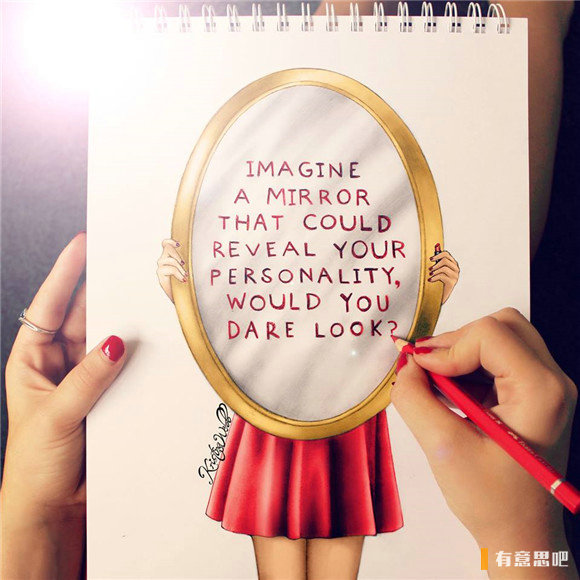 IMAGINE
A MIRROR
THAT COULD
REVEAL YOUR
PERSONALITY,
WOULD YOU
DARE LOOK?
有意思吧